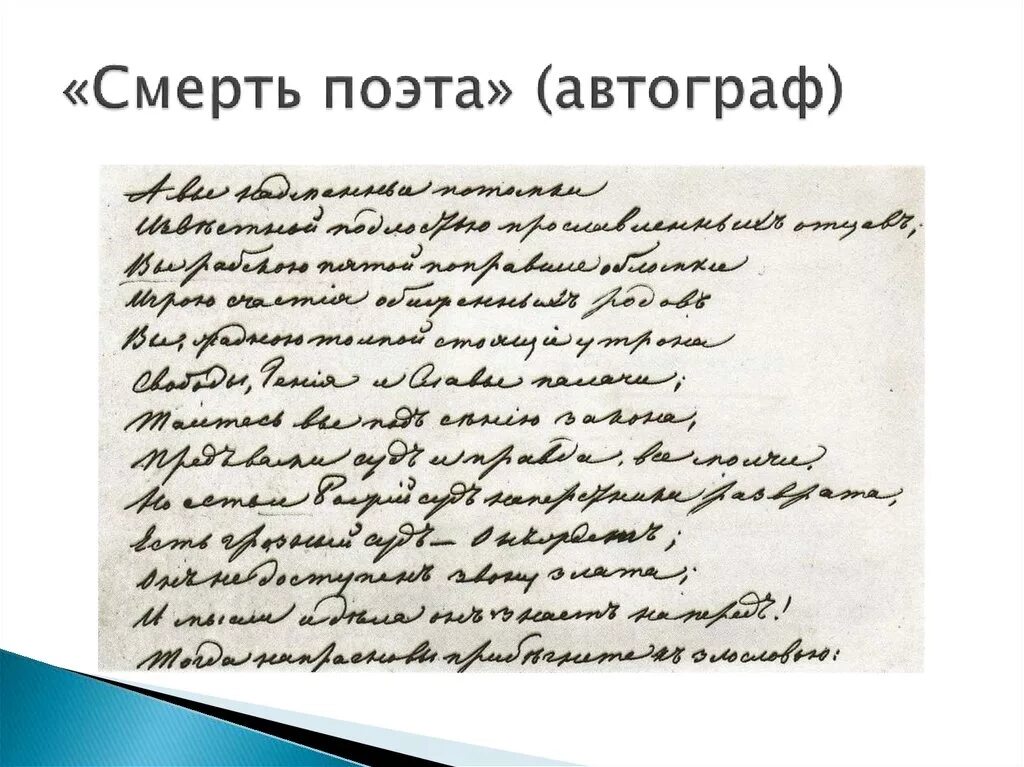 «Смерть поэта» (автограф)
А вы надменныи потомки
Извѣстной подлостью прославленныхъ отцавъ,
Вы рабскою пятой поправшие обломки
Игрою счастія обиженныхъ родовъ
Вы, жадною толпой стоящіе у трона
Свободы, Генія и Славы палачи;
Таитесь вы подъ сѣнію закона,
Предъ вами судъ и правда, все молчи.
Но есть и Божій судъ наперстники разврата,
Есть грозный судъ — Онъ ждетъ;
Онъ не доступенъ звону злата;
И мысли и дѣла онъ знаетъ напередъ!
Тогда напрасно вы прибѣгнете къ злословью: